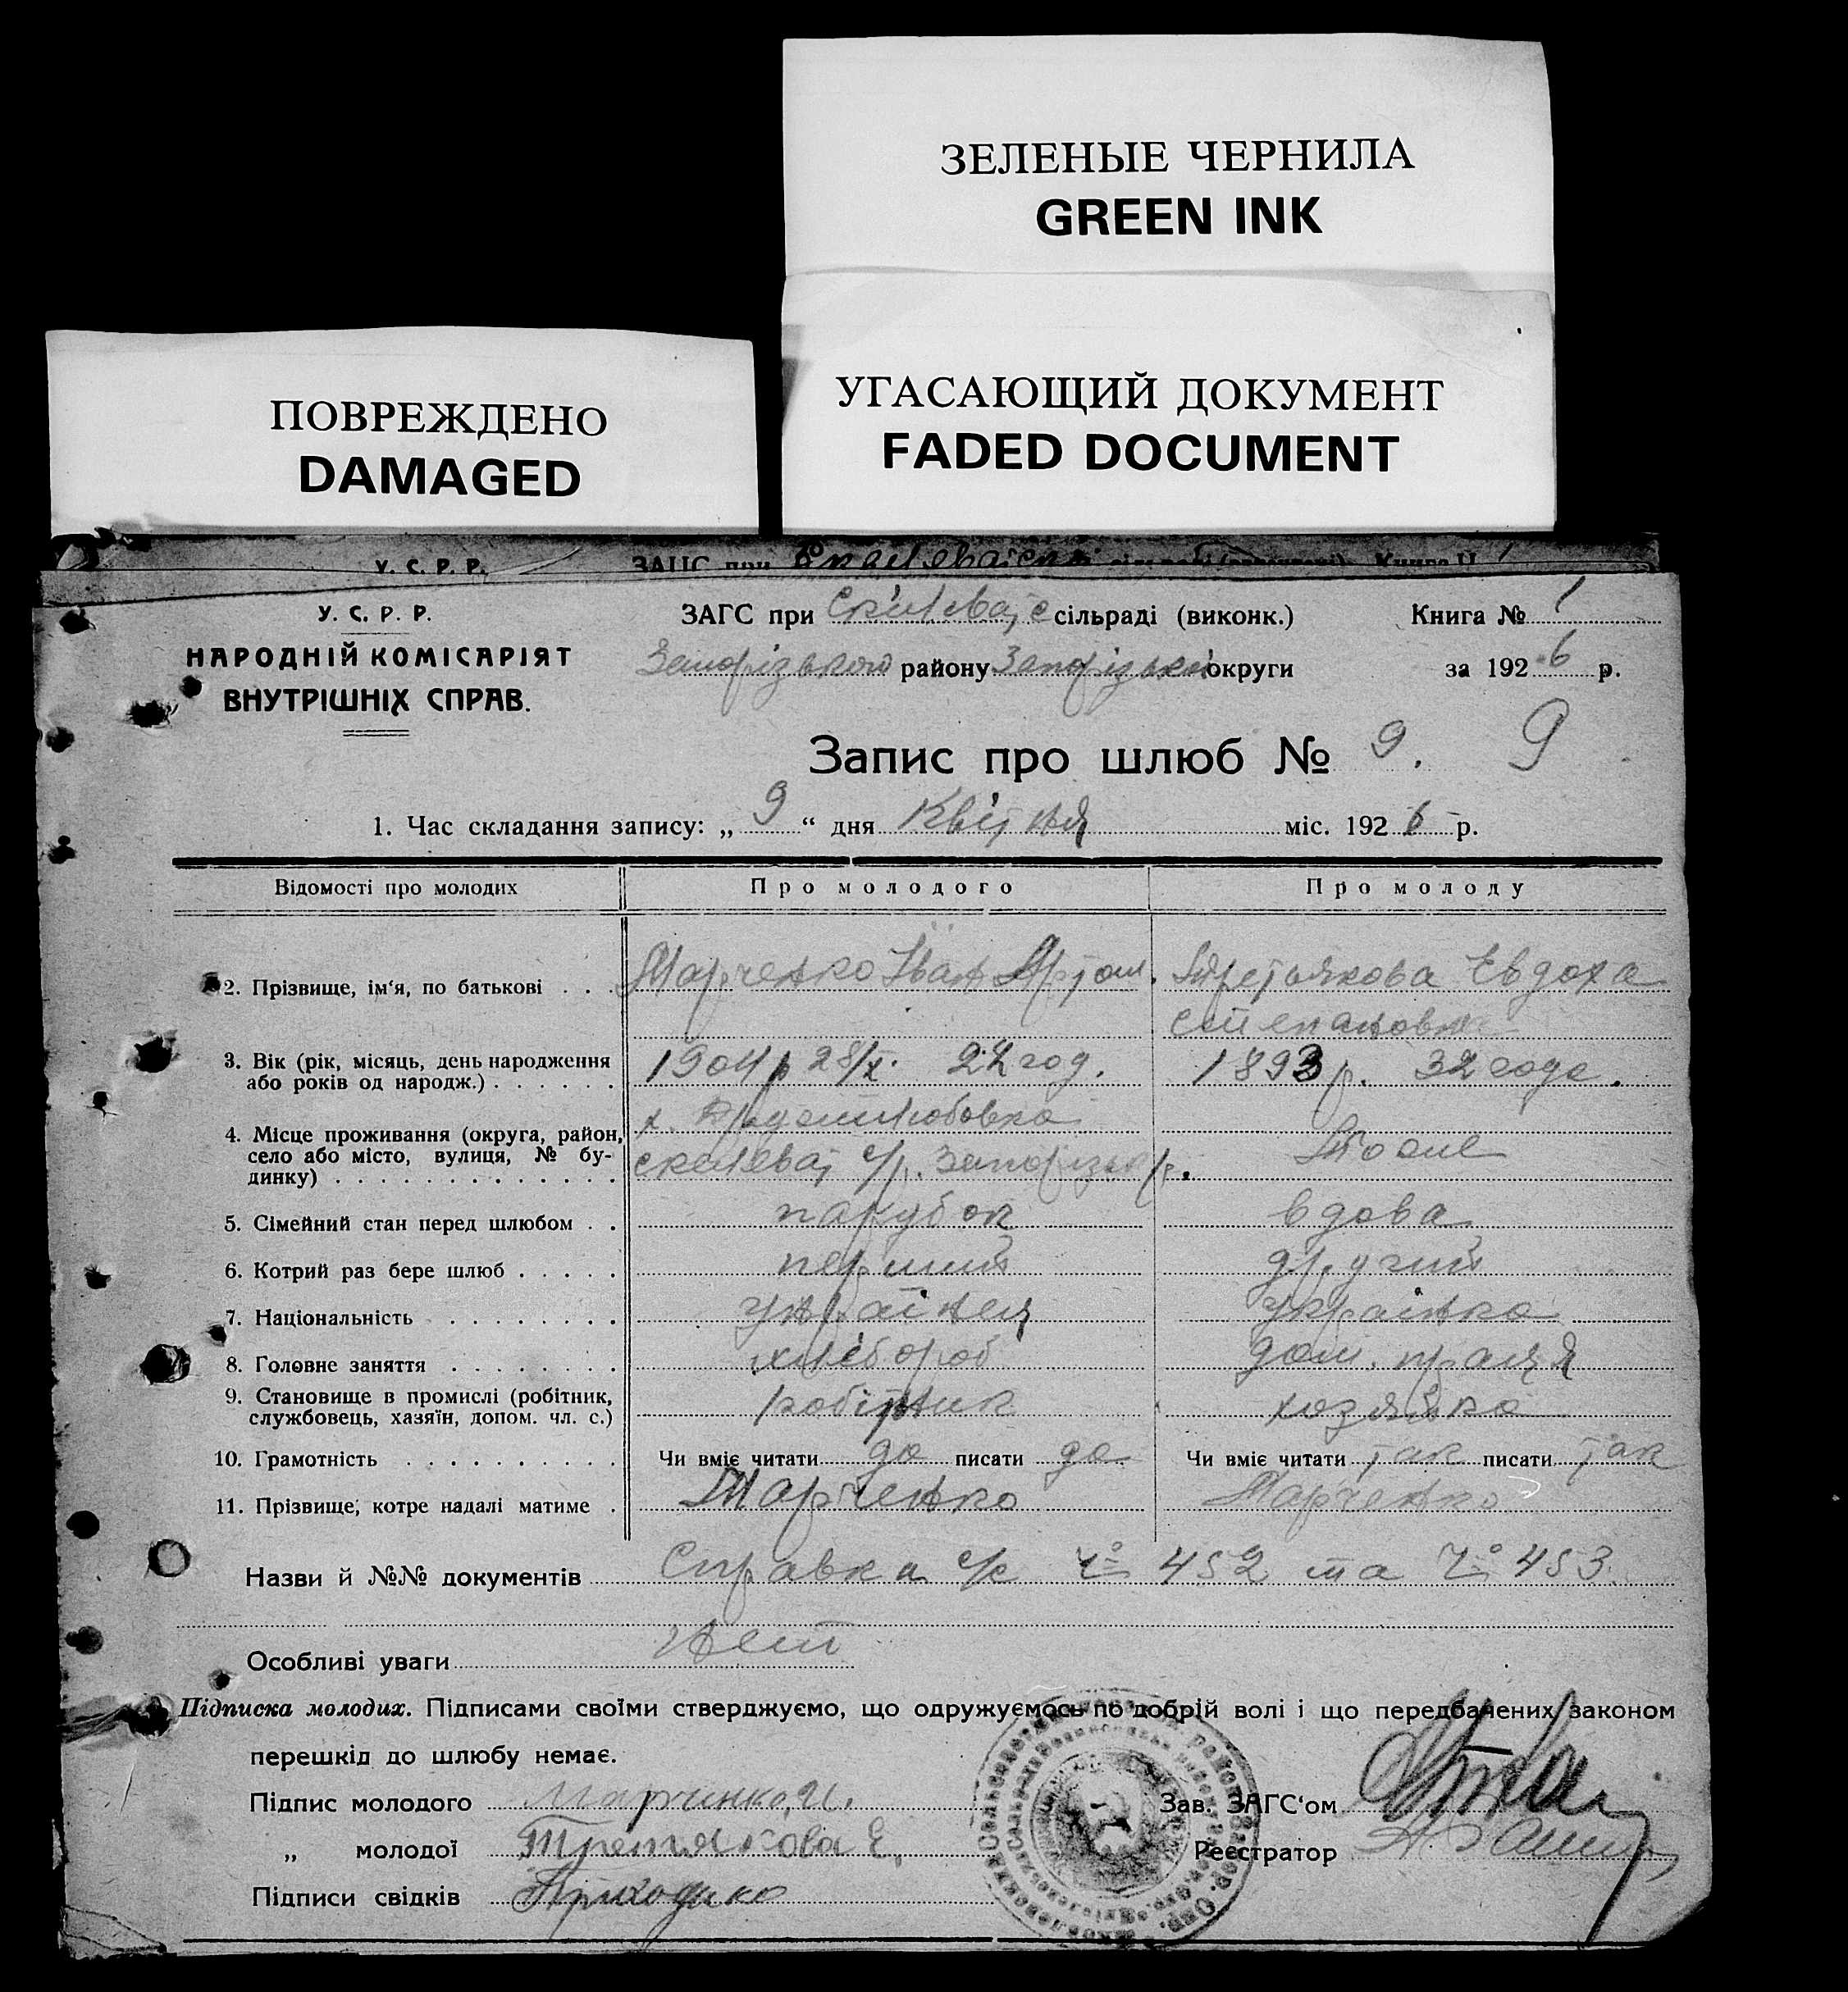 ЗЕЛЕНЫЕ ЧЕРНИЛА
GREEN INK
УГАСАЮЩИЙ ДОКУМЕНТ
FADED DOCUMENT
ПОВРЕЖДЕНО
DAMAGED
У. С. Р. Р.
ЗАГС при сільраді (виконк.) Книга № 1
НАРОДНІЙ КОМІСАРІЯТ
ВНУТРІШНІХ СПРАВ.
Запорізького району Запорізької округи за 1926 р.
Запис про шлюб № 9. 9
1. Час складання запису: „ 9 “ дня Квітня міс. 1926 р.
Відомості про молодих Про молодого Про молоду
2. Прізвище, ім‘я, по батькові . . . Марченко Іван Артом. Третьякова Евдоха
Степановна
3. Вік (рік, місяць, день народження
або років од народж.) . . . . . . 1904 р 28/X. 22 год. 1893 р. 32 года.
4. Місце проживання (округа, район,
село або місто, вулиця, № бу-
динку) . . . . . . . . . . . . . х. с/р. Запорізьк р. Тоже
5. Сімейний стан перед шлюбом . . парубок вдова
6. Котрий раз бере шлюб . . . . . перший другий
7. Національність . . . . . . . . українец українка
8. Головне заняття . . . . . . . . хлібороб дом. праця
9. Становище в промислі (робітник,
службовець, хазяїн, допом. чл. с.) робітник хозяйка
10. Грамотність . . . . . . . . . . Чи вміє читати да писати да Чи вміє читати так писати так
11. Прізвище, котре надалі матиме . Марченко Марченко
Назви й №№ документів Справки с/с Ч° 452 та Ч° 453.
Особливі уваги Нет
Підписка молодих. Підписами своїми стверджуємо, що одружуємось по добрій волі і що передбачених законом
перешкід до шлюбу немає.
Підпис молодого Марченко И. Зав. ЗАГС‘ом
„ молодої Третякова Е. Реєстратор
Підписи свідків Приходько